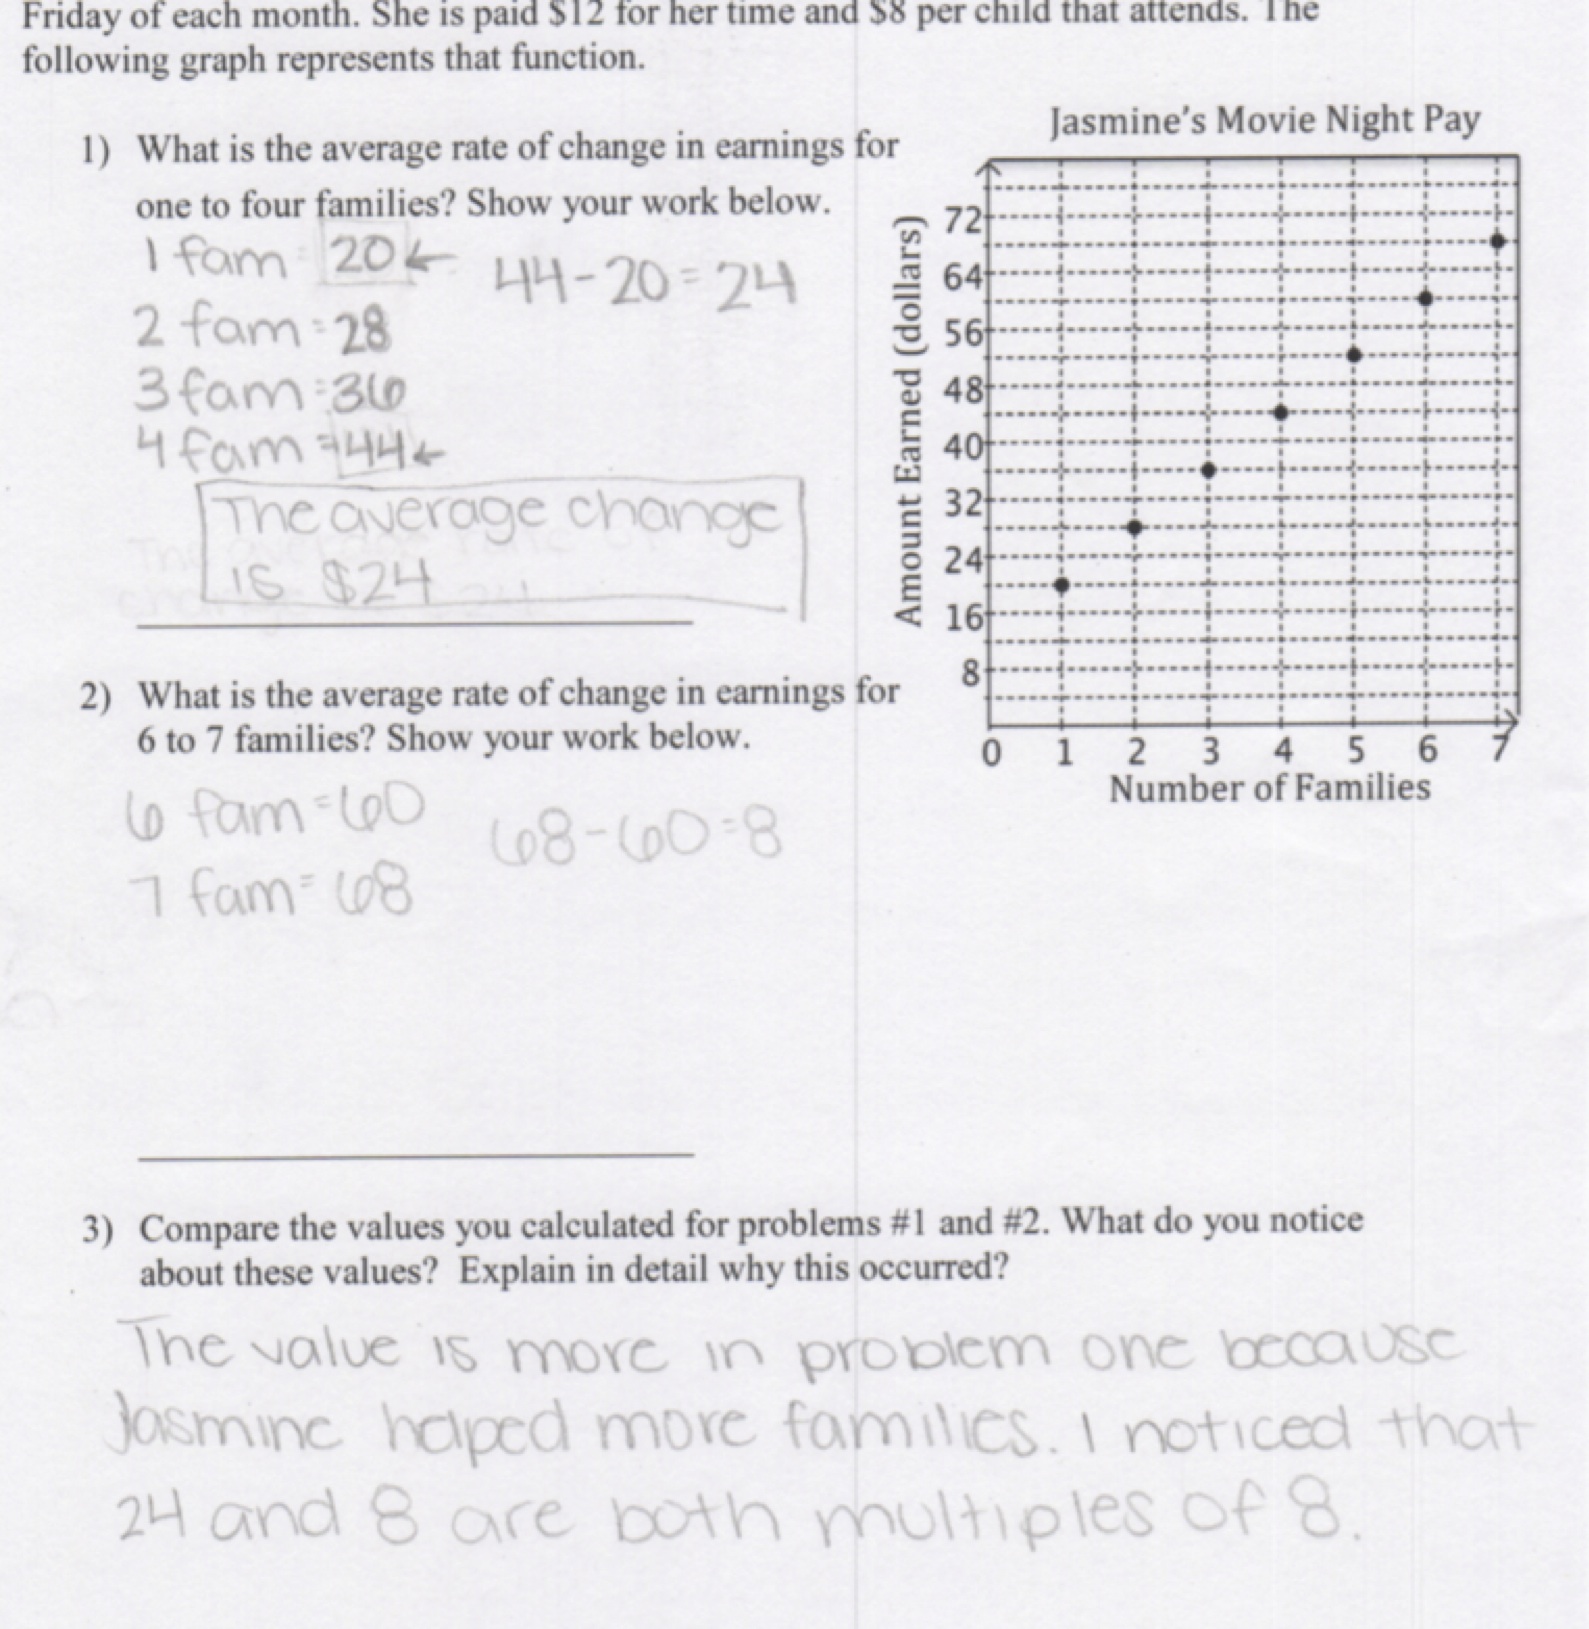 Friday of each month. She is paid $12 for her time and $8 per child that attends. The
following graph represents that function.
1) What is the average rate of change in earnings for
one to four families? Show your work below.
1 fam = 20 ←
44-20=24
2 fam = 28
3 fam = 36
4 fam = 44 ←
The average change
is $24
Jasmine's Movie Night Pay
Amount Earned (dollars)
72
64
56
48
40
32
24
16
8
0 1 2 3 4 5 6 7
Number of Families
2) What is the average rate of change in earnings for
6 to 7 families? Show your work below.
6 fam = 60
68-60=8
7 fam = 68
3) Compare the values you calculated for problems #1 and #2. What do you notice
about these values? Explain in detail why this occurred?
The value is more in problem one because
Jasmine helped more families. I noticed that
24 and 8 are both multiples of 8.